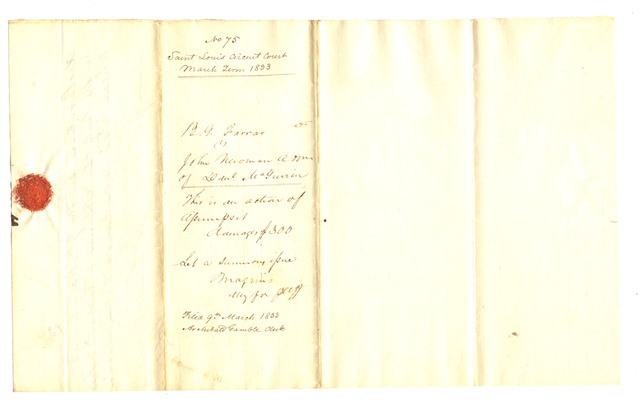 No 75
Saint Louis Circuit Court
March Term 1833
B. G. Farrar
vs
John Newman Adm
of Danl McGuire
This is an action of
Assumpsit
damages $300
Let a summons issue
Atty for plff
Filed 9th March 1833
Archibald Gamble Clerk